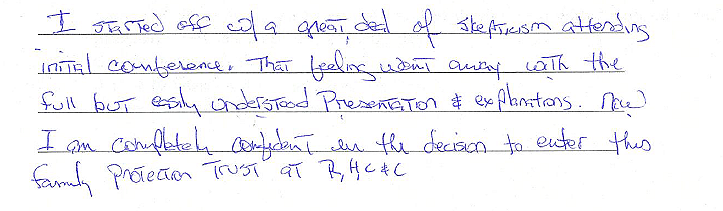 I started off w/ a great deal of skepticism attending
initial conference. That feeling went away with the
full but easily understood Presentation & explanations. Now
I am completely confident in the decision to enter this
family Protection Trust at R,H,C&C